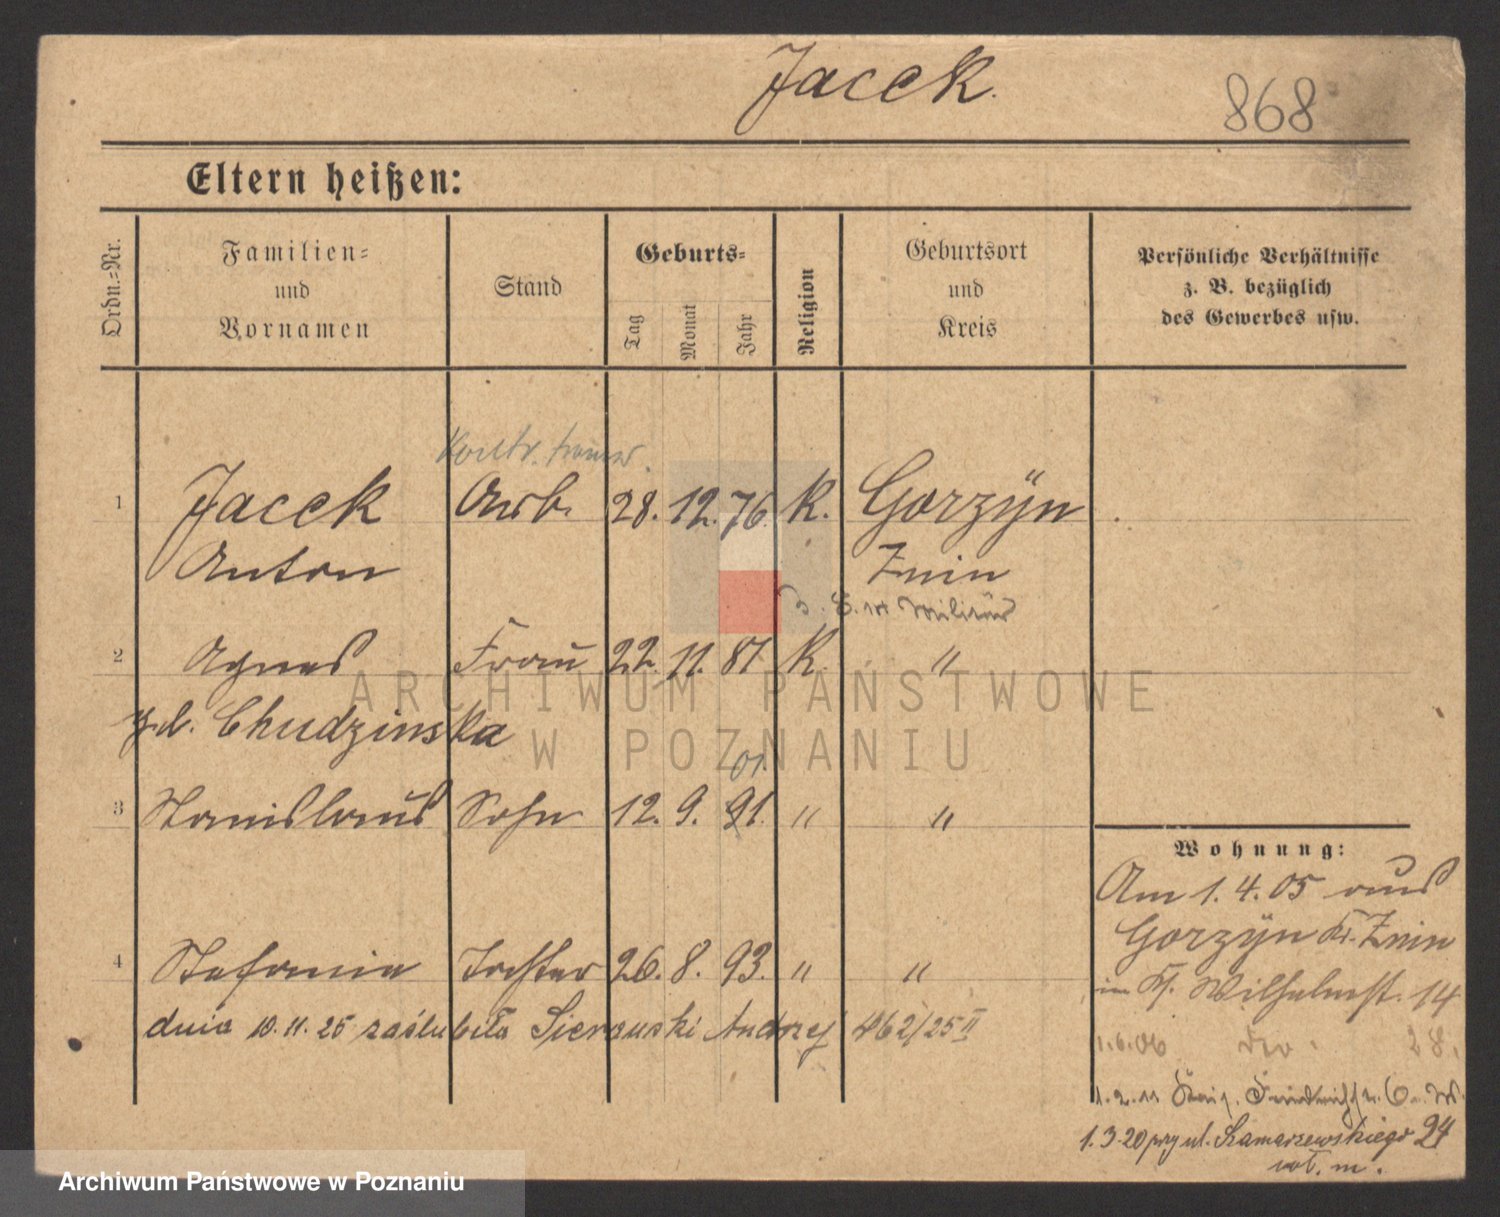 Jacek.
868
Eltern heißen:
Ordn.-Nr.
Familien-
und
Vornamen
Stand
Geburts-
Tag
Monat
Jahr
Religion
Geburtsort
und
Kreis
Persönliche Verhältnisse
z. B. bezüglich
des Gewerbes usw.
1 Jacek Arb. 28. 12. 76. K. Gorzÿn
Anton Znin
Militär
2 Agnes Frau 22. 11. 81 K. "
ARCHIWUM PAŃSTWOWE
geb. Chudzinska
W POZNANIU
01.
3 Stanislaus Sohn 12. 9. 91. " "
Wohnung:
Am 1. 4. 05 aus
Gorzÿn Kr. Znin
4 Stefania Tochter 26. 8. 93. " "
in Wilhelmst. 14
dnia 10. 11. 25 zaślubiła Sierzuski Andrzej 462/25 II
1.6.06 28.
1. 2. 11
1. 3. 20 przy ul. Szamarzewskiego 24
Archiwum Państwowe w Poznaniu